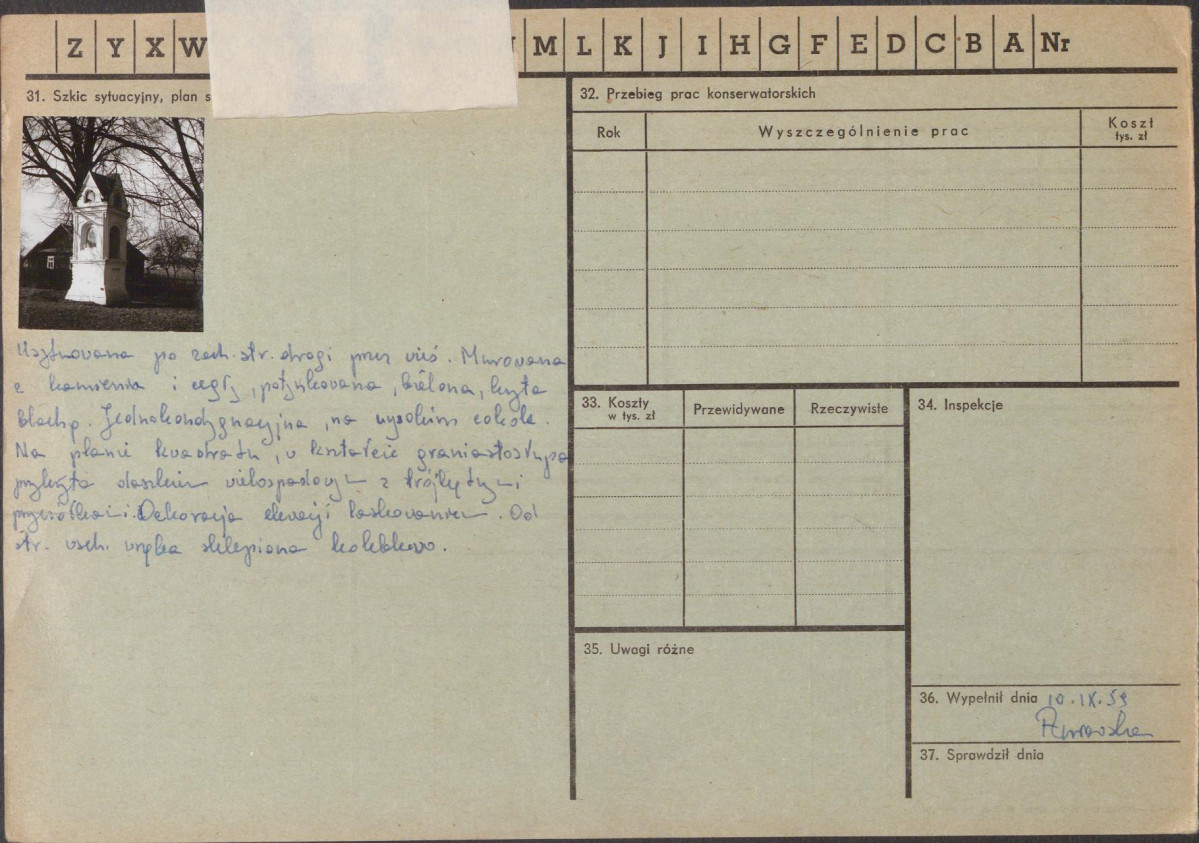 Z Y X W M L K J I H G F E D C B A Nr
31. Szkic sytuacyjny, plan s
32. Przebieg prac konserwatorskich
Rok Wyszczególnienie prac Koszt
tys. zł
Usytuowana po zach. str. drogi przez wieś. Murowana
z kamienia i cegły, potynkowana, bielona, kryta
blachą. Jednokondygnacyjna, na wysokim cokole.
Na planie kwadratu, w kształcie graniastosłupa
przykryta daszkiem wielospadowym z trójkątnymi
przyczółkami. Dekoracja elewacji laskowaniem. Od
str. wsch. wnęka sklepiona kolebkowo.
33. Koszty
w tys. zł
Przewidywane Rzeczywiste
34. Inspekcje
35. Uwagi różne
36. Wypełnił dnia 10.IX.59
37. Sprawdził dnia